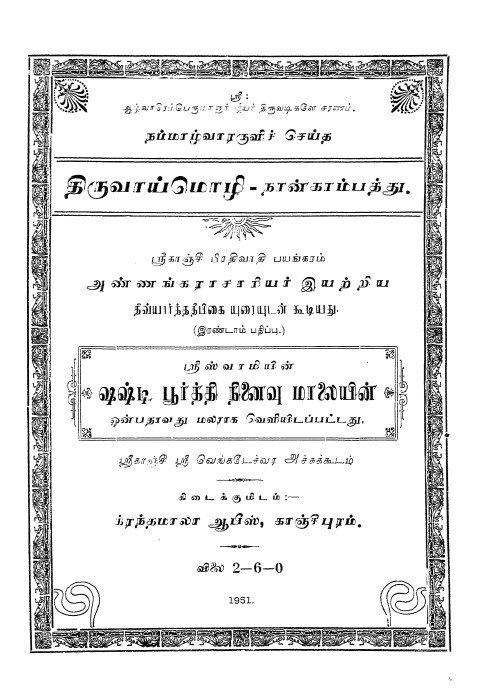 ஸ்ரீ:
ஆழ்வாரெம்பெருமானார் ஜீயர் திருவடிகளே சரணம்.
நம்மாழ்வாரருளிச் செய்த
திருவாய்மொழி - நான்காம்பத்து.
ஸ்ரீகாஞ்சீ பிரதிவாதி பயங்கரம்
அண்ணங்கராசாரியர் இயற்றிய
திவ்யார்த்ததீபிகை யுரையுடன் கூடியது.
(இரண்டாம் பதிப்பு.)
ஸ்ரீஸ்வாமியின்
ஷஷ்டி பூர்த்தி நினைவு மாலையின்
ஒன்பதாவது மலராக வெளியிடப்பட்டது.
ஸ்ரீகாஞ்சீ ஸ்ரீ வெங்கடேச்வர அச்சுக்கூடம்
கிடைக்குமிடம்:—
க்ரந்தமாலா ஆபீஸ், காஞ்சிபுரம்.
விலை 2-6-0
1951.